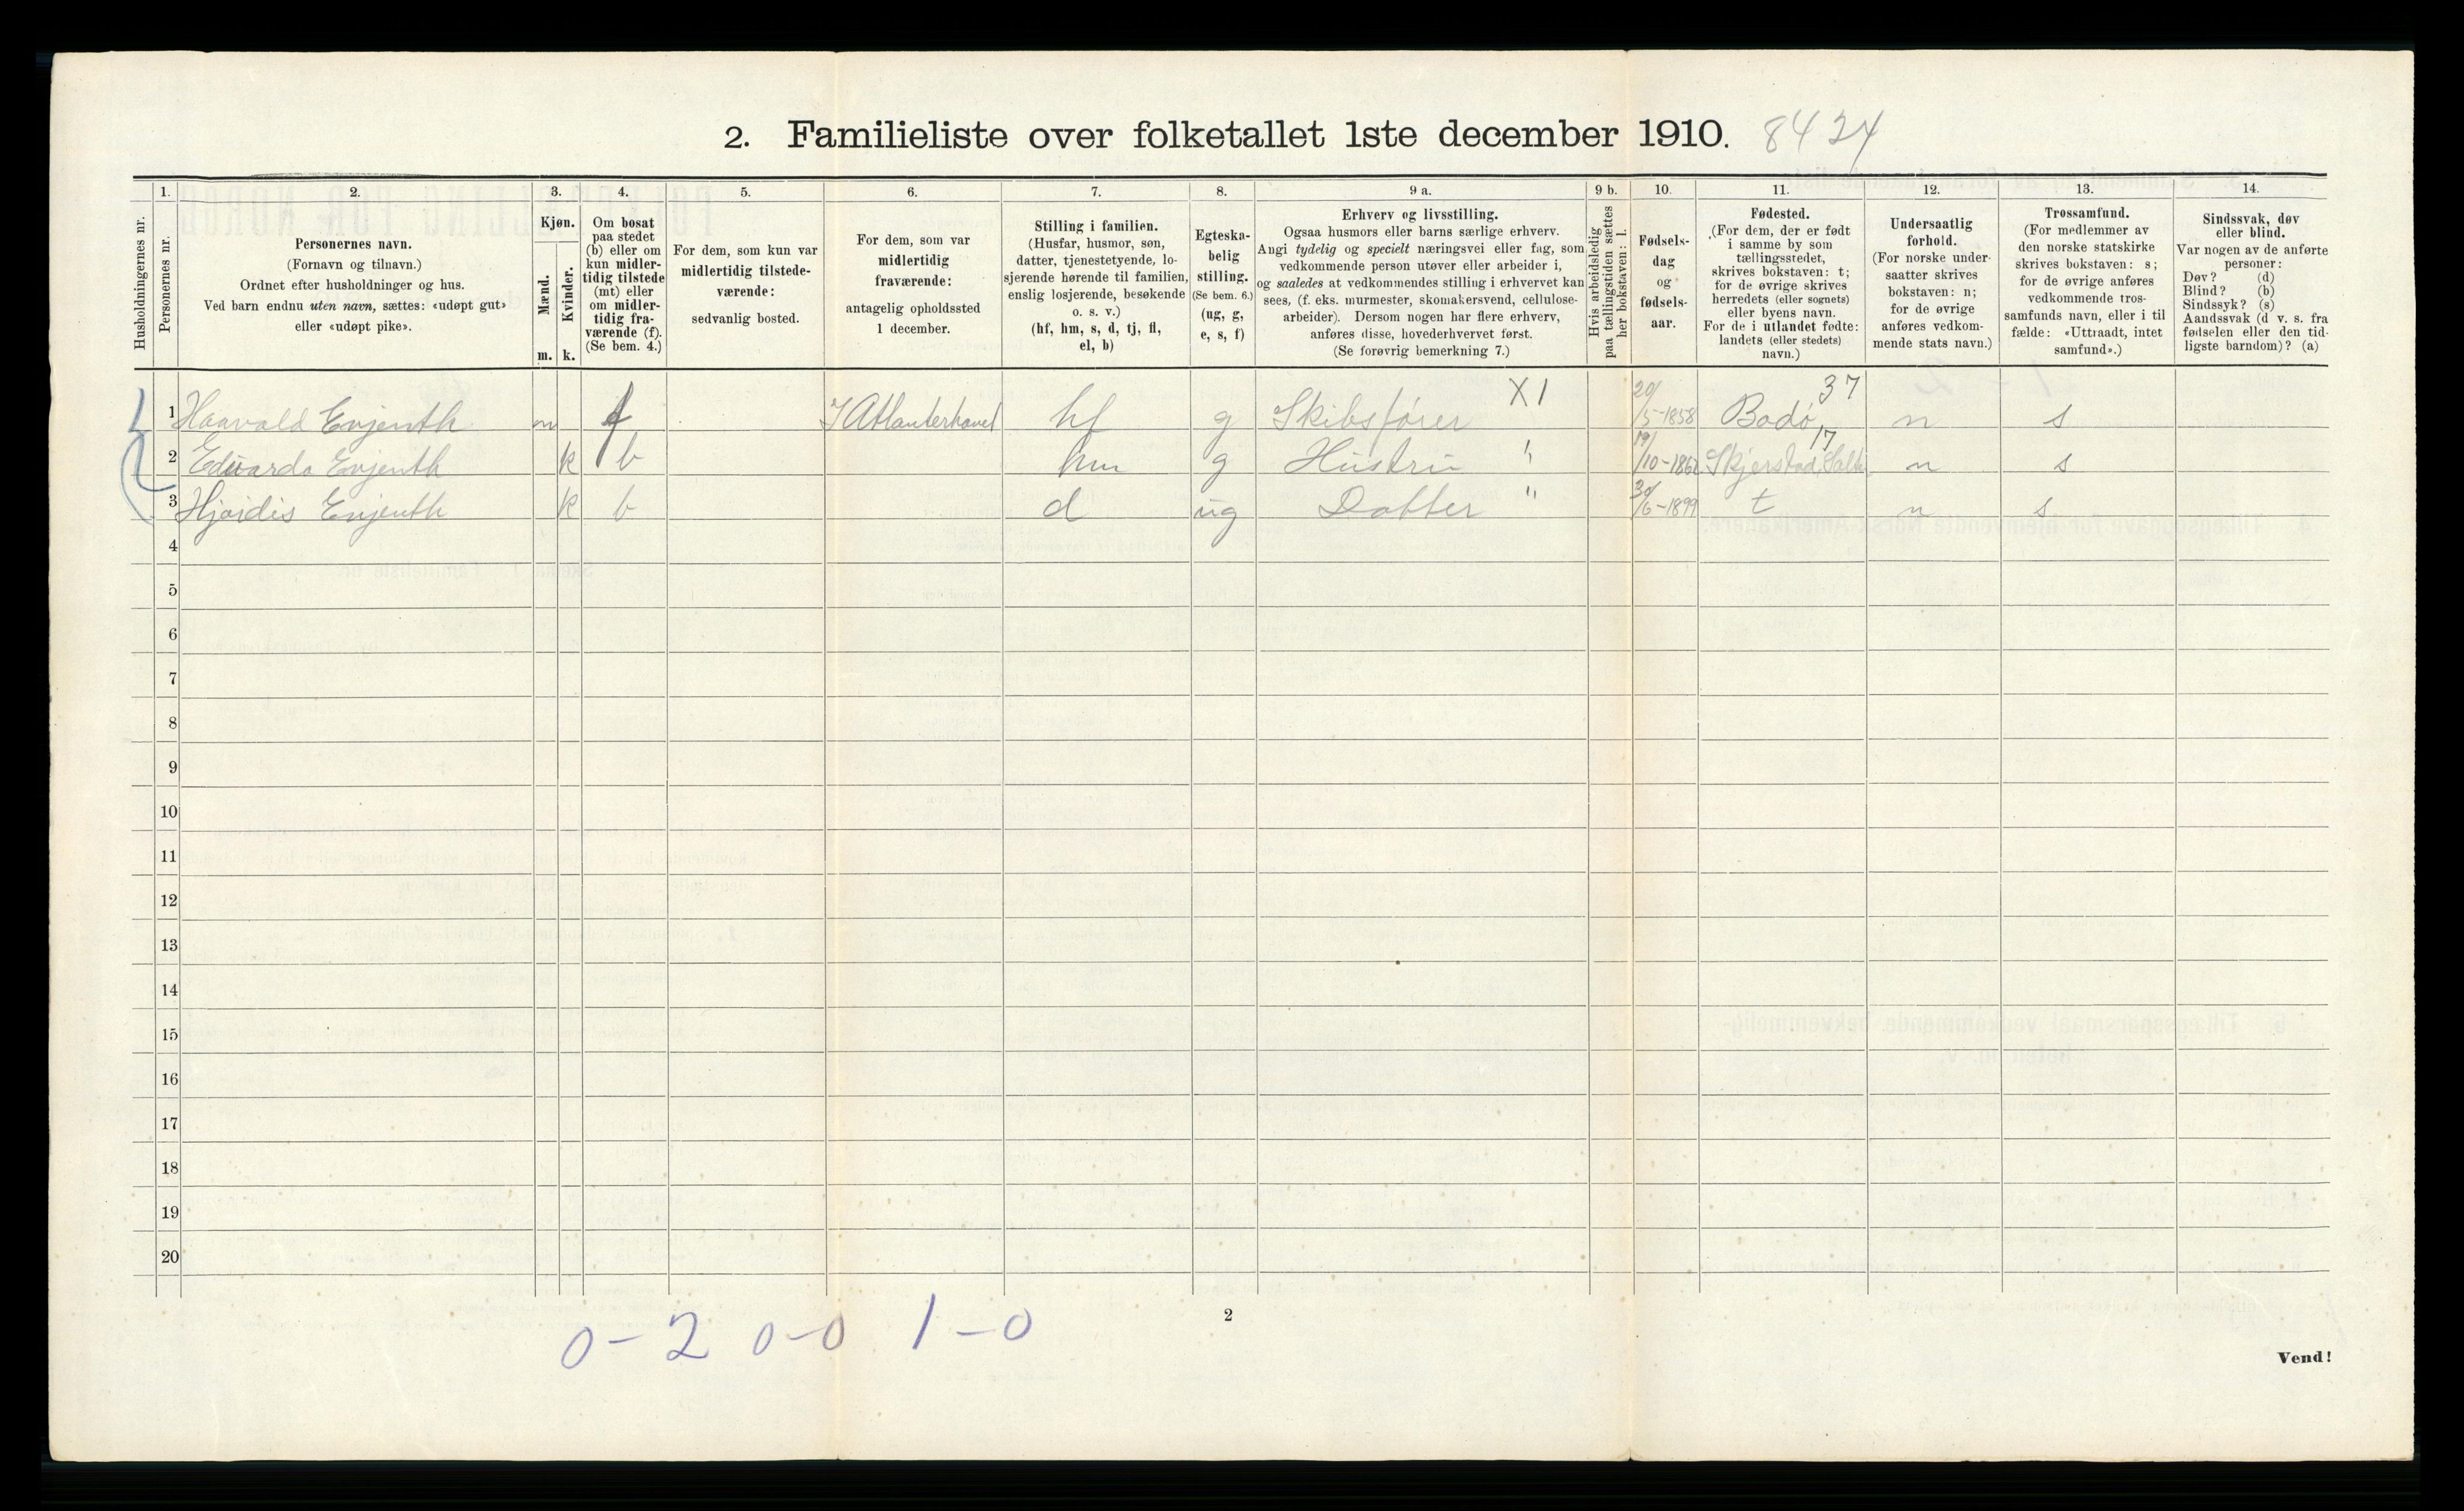 2. Familieliste over folketallet 1ste december 1910. 8424
Husholdningernes nr.
1.
Personernes nr.
2.
Personernes navn.
(Fornavn og tilnavn.)
Ordnet efter husholdninger og hus.
Ved barn endnu uten navn, sættes: «udøpt gut»
eller «udøpt pike».
3.
Kjøn.
Mænd.
Kvinder.
m. k.
4.
Om bosat
paa stedet
(b) eller om
kun midler-
tidig tilstede
(mt) eller
om midler-
tidig fra-
værende (f).
(Se bem. 4.)
5.
For dem, som kun var
midlertidig tilstede-
værende:
sedvanlig bosted.
6.
For dem, som var
midlertidig
fraværende:
antagelig opholdssted
1 december.
7.
Stilling i familien.
(Husfar, husmor, søn,
datter, tjenestetyende, lo-
sjerende hørende til familien,
enslig losjerende, besøkende
o. s. v.)
(hf, hm, s, d, tj, fl,
el, b)
8.
Egteska-
belig
stilling.
(Se bem. 6.)
(ug, g,
e, s, f)
9 a.
Erhverv og livsstilling.
Ogsaa husmors eller barns særlige erhverv.
Angi tydelig og specielt næringsvei eller fag, som
vedkommende person utøver eller arbeider i,
og saaledes at vedkommendes stilling i erhvervet kan
sees, (f. eks. murmester, skomakersvend, cellulose-
arbeider). Dersom nogen har flere erhverv,
anføres disse, hovederhvervet først.
(Se forøvrig bemerkning 7.)
9 b.
Hvis arbeidsledig
paa tællingstiden sættes
her bokstaven: l.
10.
Fødsels-
dag
og
fødsels-
aar.
11.
Fødested.
(For dem, der er født
i samme by som
tællingsstedet,
skrives bokstaven: t;
for de øvrige skrives
herredets (eller sognets)
eller byens navn.
For de i utlandet fødte:
landets (eller stedets)
navn.)
12.
Undersaatlig
forhold.
(For norske under-
saatter skrives
bokstaven: n;
for de øvrige
anføres vedkom-
mende stats navn.)
13.
Trossamfund.
(For medlemmer av
den norske statskirke
skrives bokstaven: s;
for de øvrige anføres
vedkommende tros-
samfunds navn, eller i til
fælde: «Uttraadt, intet
samfund».)
14.
Sindssvak, døv
eller blind.
Var nogen av de anførte
personer:
Døv? (d)
Blind? (b)
Sindssyk? (s)
Aandssvak (d v. s. fra
fødselen eller den tid-
ligste barndom)? (a)
1 Haavald Evjenth m f I Atlanterhavet hf g Skibsfører X1 20/5-1858 Bodø 37 n s
2 Edvarda Evjenth k b hm g Hustru " 19/10-1862 Skjerstad, Salt. 17 n s
3 Hjørdis Evjenth k b d ug Datter " 30/6-1899 t n s
4
5
6
7
8
9
10
11
12
13
14
15
16
17
18
19
20
0-2 0-0 1-0
2
Vend!